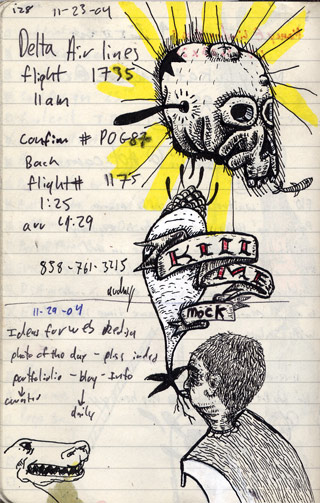 11-23-04
Delta Air lines
flight 1735
11am
confirm # POG87
Back
flight# 1175
1:25
arr 4:29
858-761-3215
KILL
ME
mock
11-29-04
Ideas for web design
photo of the day - pless index
portfolio - blog - Info
daily